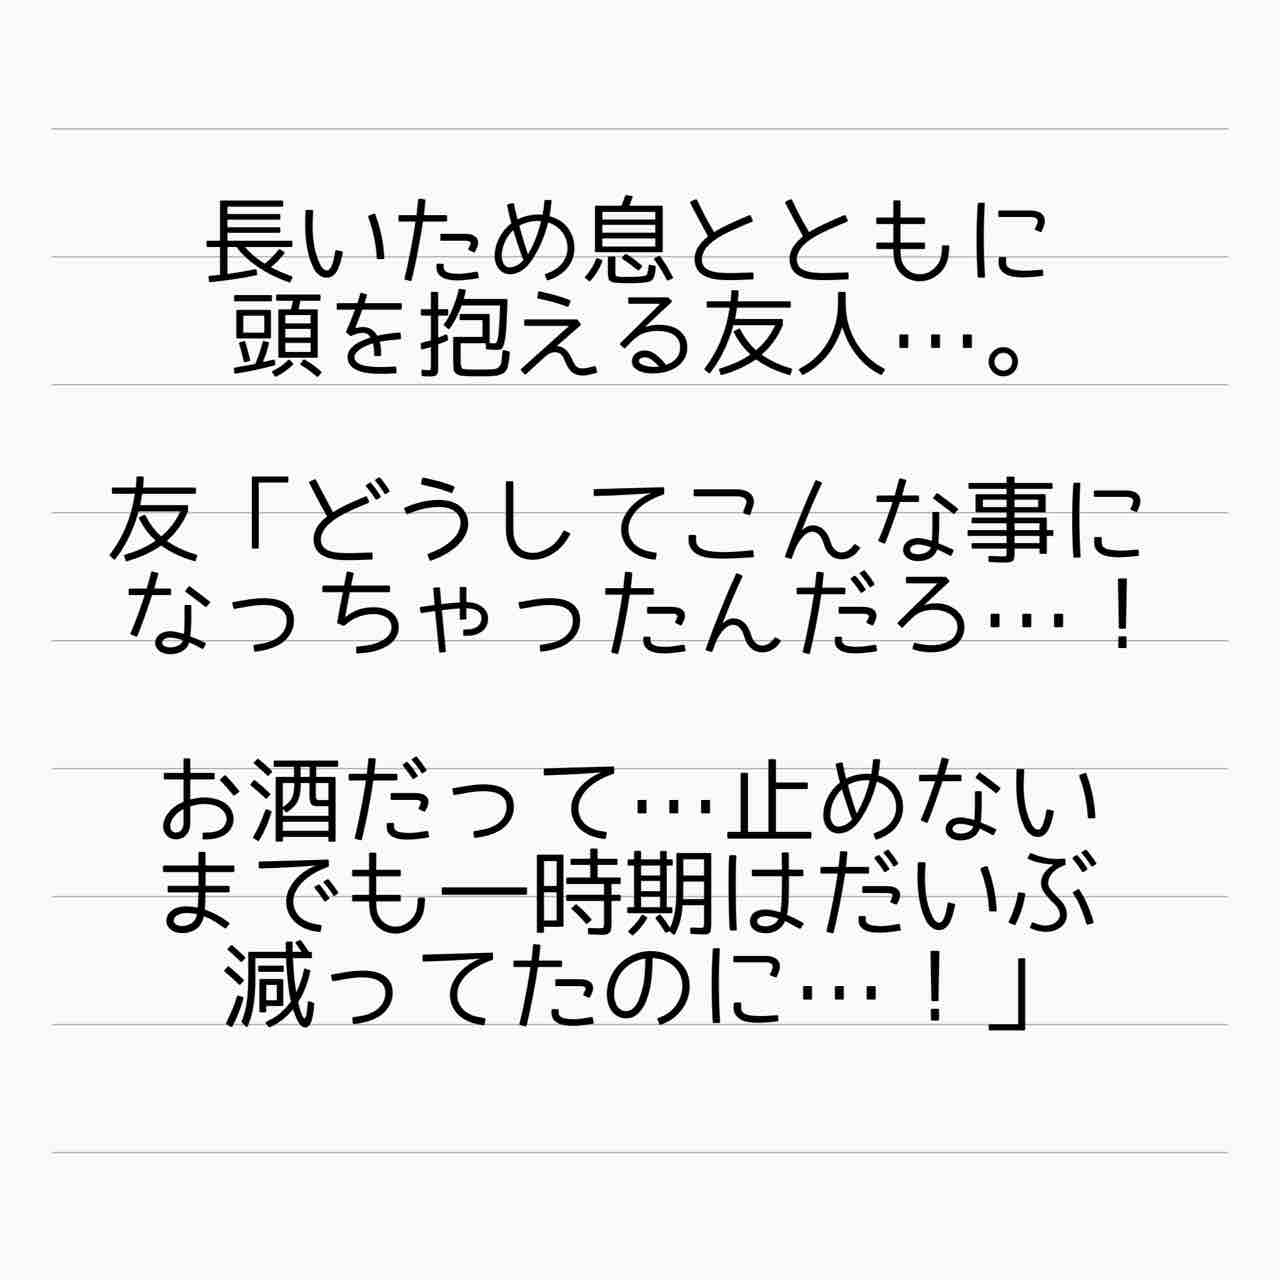 長いため息とともに
頭を抱える友人…。
友「どうしてこんな事に
なっちゃったんだろ…！
お酒だって…止めない
までも一時期はだいぶ
減ってたのに…！」